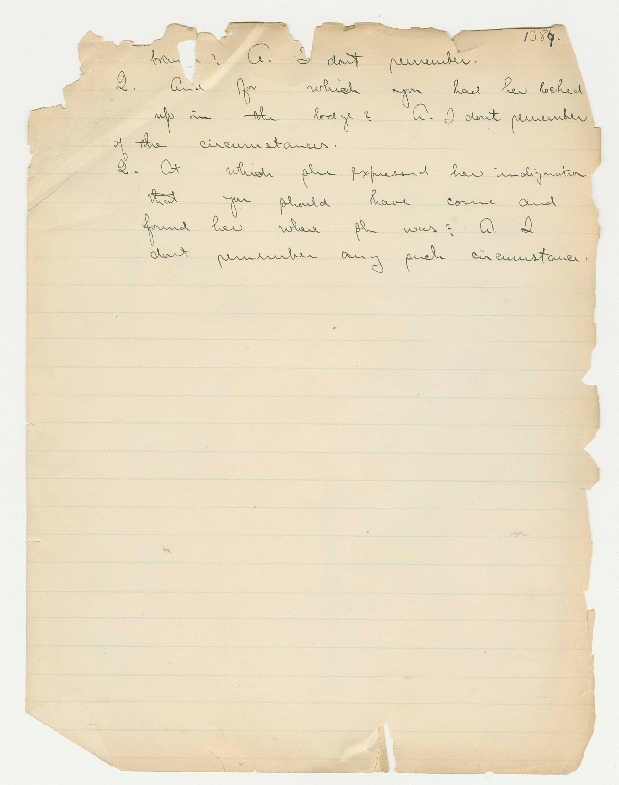 1389.
? A. I dont remember.
Q. And for which you had her locked
up in the lodge? A. I dont remember
of the circumstances.
Q. At which she expressed her indignation
that you should have come and
found her where she was? A. I
dont remember any such circumstance.